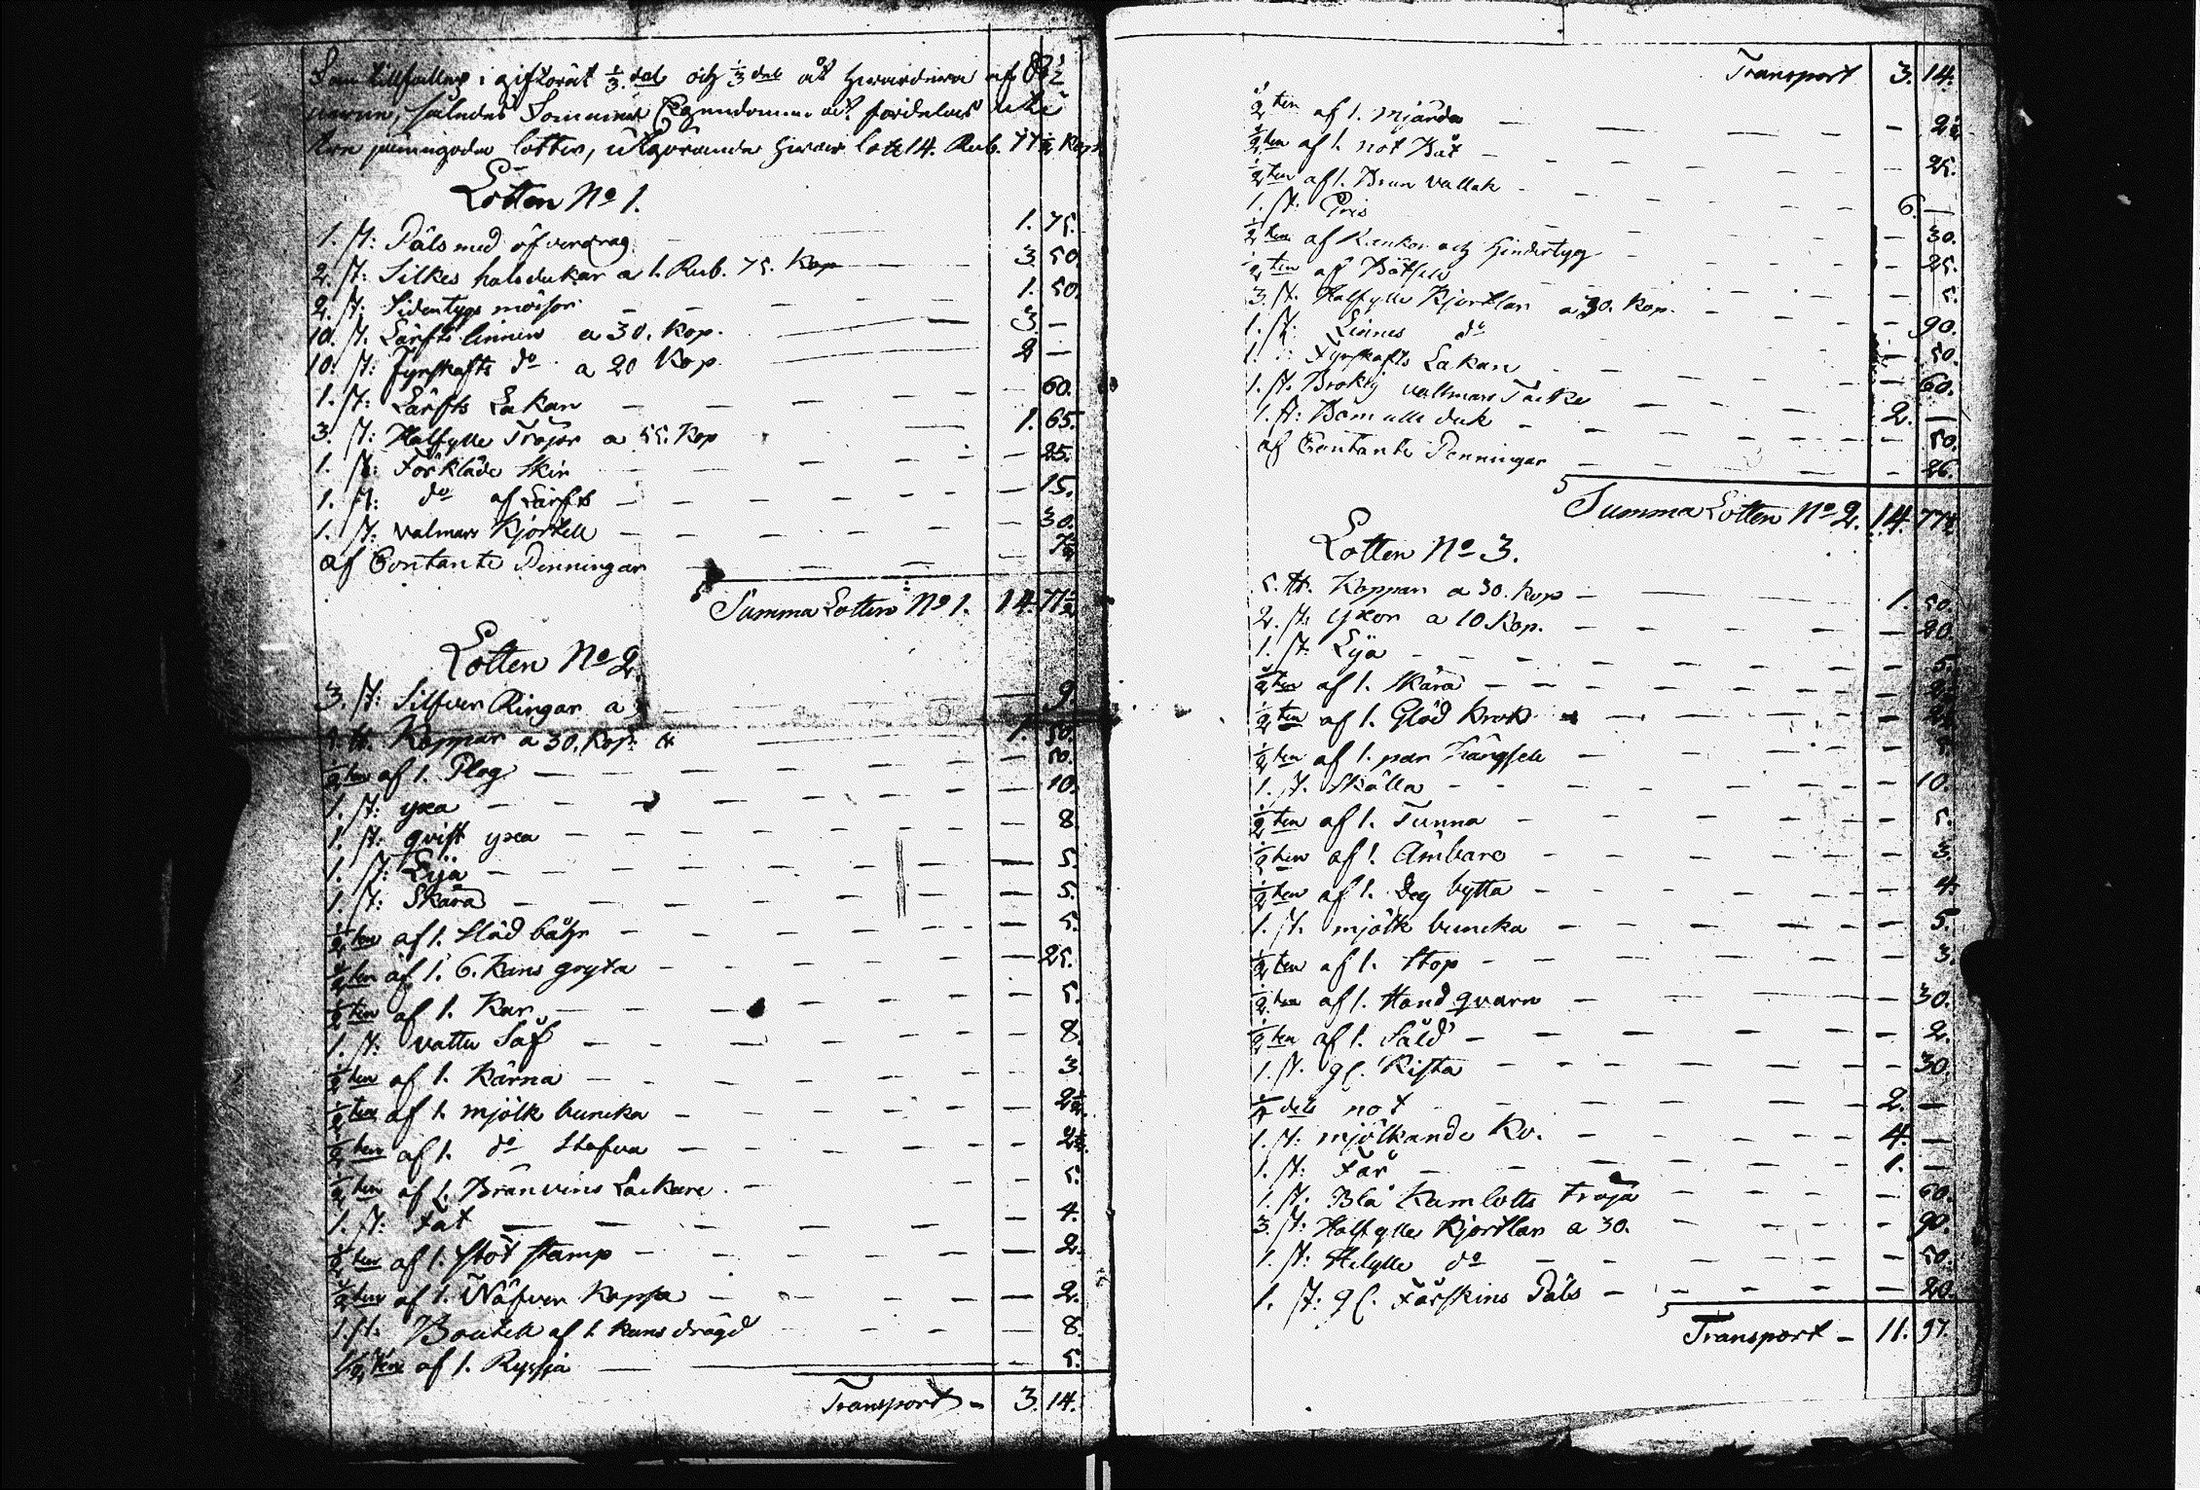 Som tillfaller i giftorät 1/3 del och 1/3 del åt hwardera af
nerne, således Sommerat Egendommen och fördelas uti
tre jämngoda lotter, utgörande hwar lott 14. Rub. 77 1/2 Kop.
Lotten No 1.
1. st: Päls med öfverdrag 1. 75.
2. st: Silkes halsdukar a 1. Rub. 75. Kop 3. 50.
2. st: Sidentygs mössor 1. 50.
10. st. Lärfts linnen a 30. Kop. 3. —
10. st: fyrskafts do a 20 Kop. 2 —
1. st: Lärfts Lakan — 60.
3. st: Halfylle Tröjor a 55. Kop 1. 65.
1. st: Förkläde skin — 25.
1. st: do af Lärft — 15.
1. st: valmars Kjortell — 30.
af Contante Penningar — 7 1/2
Summa Lotten No 1. 14. 77 1/2
Lotten No 2.
3. st: Silfver Ringar a 3 — 9.
5. tt. Koppar a 30. Kop. 1. 50.
1/2 ten af 1. Plog — 50.
1. st: yxa — 10.
1. st: qvist yxa — 8.
1. st: Lija — 5.
1. st: Skära — 5.
1/2 ten af 1. Släd — 5.
1/2 ten af 1. 6. Kans gryta — 25.
1/2 ten af 1. Kar — 5.
1. st: vattu Så — 8.
1/2 ten af 1. Kärna — 3.
1/2 ten af 1. mjölk buncka — 2 1/2.
1/2 ten af 1. do Stäfva — 2 1/2.
1/2 ten af 1. Bränvins Lackare — 5.
1. st: Fat — 4.
1/2 ten af 1. stöt stamp — 2.
1/2 ten af 1. Näfver Kappa — 2.
1. st. Boutell af 1 kans drägd — 8.
1/2 ten af 1. Ryssja — 5.
Transport — 3. 14.
Transport 3. 14.
1/2 ten af 1. Mjärda — 2 1/2
1/2 ten af 1. not Båt — 25.
1/2 ten af 1. Brun vallak 6. —
1. st: Gris — 30.
1/2 ten af Kärkor och hindertyg — 25.
1/2 ten af — 5.
3. st. Halfylle Kjortlar a 30. Kop. — 90.
1. st. Linnes do — 50.
1. Fyrskafts Lakan — 60.
1. st. Brokig vallmars Täcke 2. —
1. st: Bomulls duk — 50.
af Contante Penningar — 26.
Summa Lotten No 2. 14. 77 1/2
Lotten No 3.
5. tt. Koppar a 30. Kop — 1. 50.
2. st. yxor a 10 Kop. — 20.
1. st. Lija — 5.
1/2 ten af 1. Skära — 2 1/2
1/2 ten af 1. Glöd krok — 2 1/2
1/2 ten af 1. par — 5.
1. st. Skälla — 10.
1/2 ten af 1. Tunna — 5.
1/2 ten af 1. Ämbare — 3.
1/2 ten af 1. Deg bytta — 4.
1. st. mjölk buncka — 5.
1/2 ten af 1. Stop — 3.
1/2 ten af 1. Hand qvarn — 30.
1/2 ten af 1. Såld — 2.
1. st. gl. Kista — 30.
1/4 dels not 2. —
1. st: mjölkande Ko. 4. —
1. st: Får 1. —
1. st: Blå Kamlotts tröja — 60.
3. st: Halfylle Kjortlar a 30. — 90.
1. st: Helylle do — 50.
1. st: gl. Fårskins Päls — 20.
Transport — 11. 97.